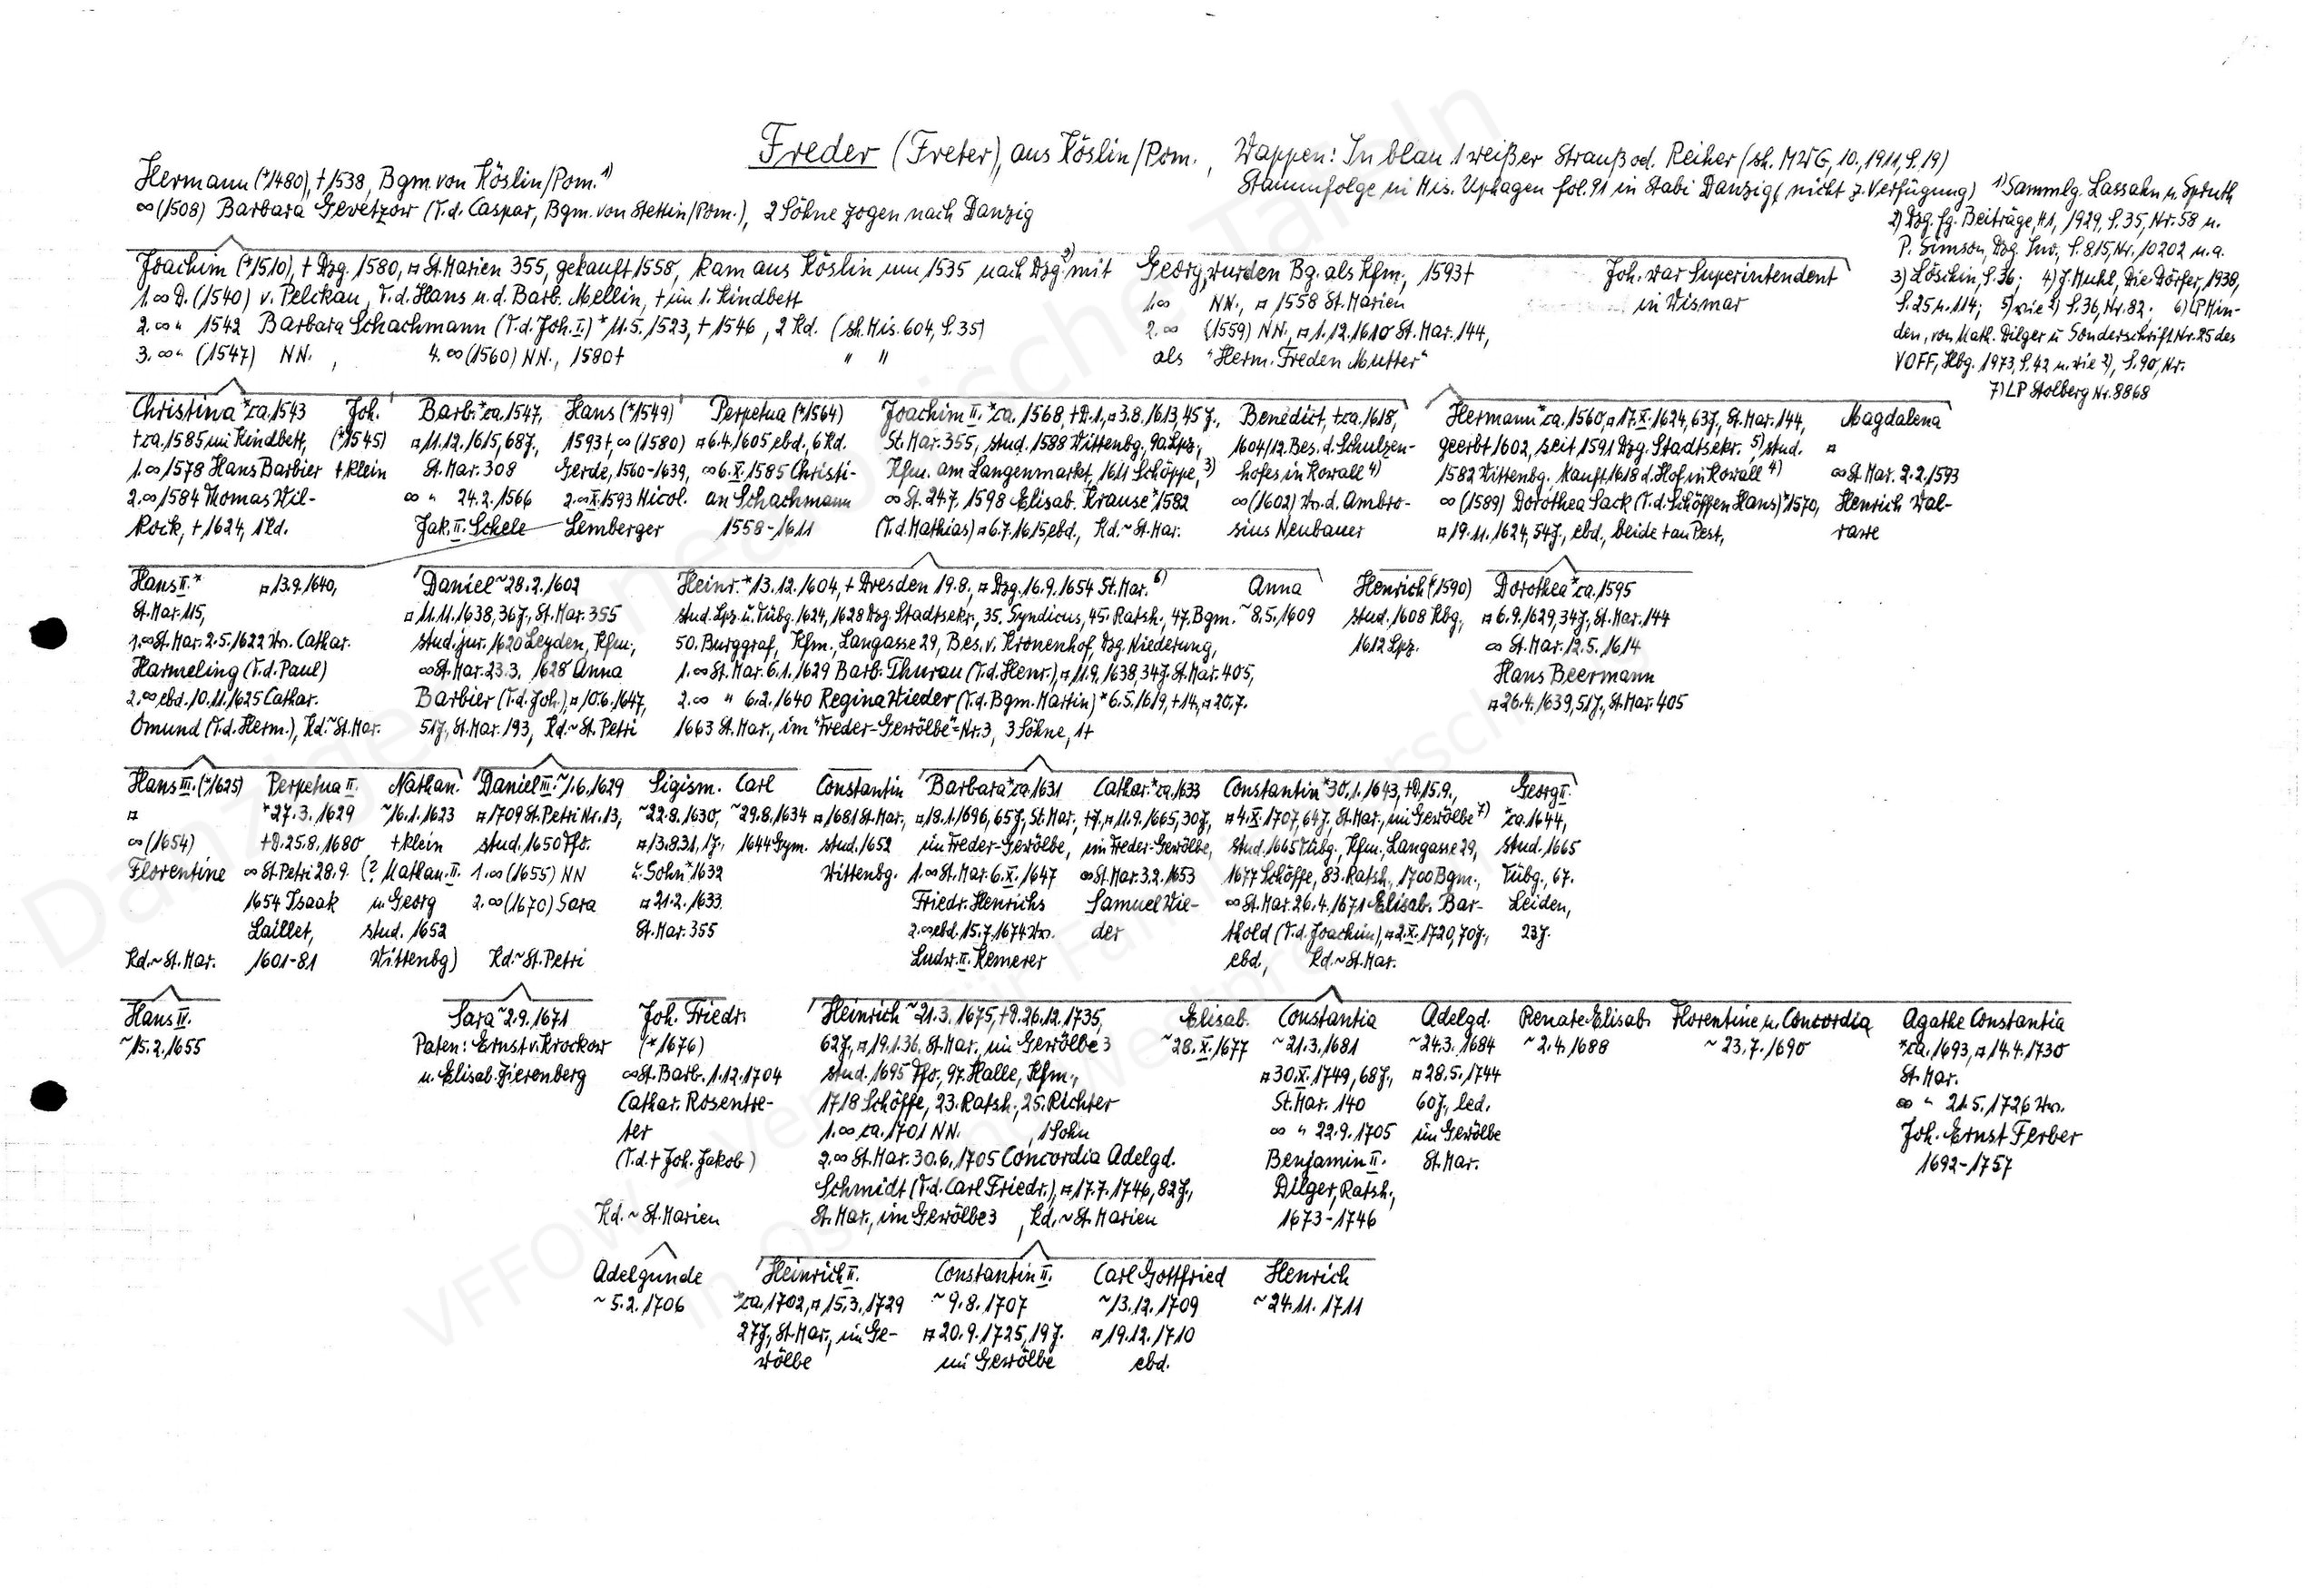 Freder (Freter), aus Köslin/Pom., Wappen: In blau 1 weißer Strauß od. Reiher (sh. MWG, 10, 1911, S. 19)
Stammfolge in Mis. Uphagen fol. 91 in Stabi Danzig (nicht z. Verfügung)
1) Sammlg. Lassahn u. Spruth
2) Dzg. fg. Beiträge, H1, 1929, S. 35, Nr. 58 u.
P. Simson, Dzg. Inv., S. 815, Nr. 10202 u.a.
3) Löschin, S. 36; 4) J. Muhl, Die Dörfer, 1938,
S. 25 u. 114; 5) wie 2) S. 36, Nr. 82; 6) LP Min-
den, von Math. Dilger u Sonderschrift Nr. 25 des
VOFF, Hbg. 1973, S. 42 u. wie 2), S. 90, Nr.
7) LP Stolberg Nr. 8868
Hermann (*1480), † 1538, Bgm. von Köslin/Pom. 1)
∞ (1508) Barbara Gevetzow (T.d. Caspar, Bgm. von Stettin/Pom.), 2 Söhne zogen nach Danzig
Joachim (*1510), † Dzg. 1580, ¤ St. Marien 355, gekauft 1558, kam aus Köslin um 1535 nach Dzg. 2) mit
1. ∞ D. (1540) v. Pelckau, T.d. Hans u. d. Barb. Mellin, † im 1. Kindbett
2. ∞ " 1542 Barbara Schachmann (T.d. Joh. I.) * 11.5.1523, † 1546, 2 Kd. (sh. Mis. 604, S. 35)
3. ∞ " (1547) NN., 4. ∞ (1560) NN., 1580 † " "
Georg, wurden Bg. als Kfm., 1593 †
1. ∞ NN., ¤ 1558 St. Marien
2. ∞ (1559) NN, ¤ 1.12.1610 St. Mar. 144,
als "Herm. Freden Mutter"
Joh. war Superintendent
in Wismar
Christina * ca. 1543
† ca. 1585 im Kindbett,
1. ∞ 1578 Hans Barbier
2. ∞ 1584 Thomas Wil-
kock, † 1624, 1 Kd.
Joh.
(*1545)
† klein
Barb. * ca. 1547,
¤ 11.12.1615, 68 J.,
St. Mar. 308
∞ " 24.2.1566
Jak. II. Schele
Hans (*1549)
1593 †, ∞ (1580)
Gerde, 1560-1639,
2. ∞ X. 1593 Nicol.
Lemberger
Perpetua (*1564)
¤ 6.4.1605 ebd., 6 Kd.
∞ 6.X.1585 Christi-
an Schachmann
1558-1611
Joachim II. * ca. 1568, † D. 1., ¤ 3.8.1613, 45 J.,
St. Mar. 355, stud. 1588 Wittenbg., 90 Lpz.,
Kfm. am Langenmarkt, 1611 Schöppe, 3)
∞ St. 24.7.1598 Elisab. Krause * 1582
(T.d. Mathias) ¤ 6.7.1615, ebd., Kd. ~ St. Mar.
Benedict, † ca. 1618,
1604/12 Bes. d. Schulzen-
hofes in Kowall 4)
∞ (1602) Wn. d. Ambro-
sius Neubauer
Hermann * ca. 1560, ¤ 17.X.1624, 63 J., St. Mar. 144,
geerbt 1602, seit 1591 Dzg. Stadtsekr. 5), stud.
1582 Wittenbg., kauft 1618 d. Hof in Kowall 4)
∞ (1589) Dorothea Sack (T.d. Schöffen Hans) * 1570,
¤ 19.11.1624, 54 J., ebd., beide † an Pest,
Magdalena
¤
∞ St. Mar. 2.2.1593
Henrich Wal-
rawe
Hans II. * ¤ 13.9.1640,
St. Mar. 115,
1. ∞ St. Mar. 2.5.1622 Wn. Cathar.
Harmeling (T.d. Paul)
2. ∞ ebd. 10.11.1625 Cathar.
Omund (T.d. Herm.), Kd. ~ St. Mar.
Daniel ~ 28.2.1602
¤ 11.11.1638, 36 J., St. Mar. 355
stud. jur. 1620 Leyden, Kfm.,
∞ St. Mar. 23.3.1628 Anna
Barbier (T.d. Joh.), ¤ 10.6.1647,
51 J., St. Mar. 193, Kd. ~ St. Petri
Heinr. * 13.12.1604, † Dresden 19.8., ¤ Dzg. 16.9.1654 St. Mar. 6)
stud. Lpz. u. Tübg. 1624, 1628 Dzg. Stadtsekr., 35. Syndicus, 45. Ratsh., 47. Bgm.
50. Burggraf, Kfm., Langgasse 29, Bes. v. Kronenhof, Dzg. Niederung,
1. ∞ St. Mar. 6.1.1629 Barb. Thurau (T.d. Henr.), ¤ 11.9.1638, 34 J. St. Mar. 405,
2. ∞ " 6.2.1640 Regina Wieder (T.d. Bgm. Martin) * 6.5.1619, † 14., ¤ 20.7.
1663 St. Mar., im "Freder-Gewölbe" Nr. 3, 3 Söhne, 1 †
Anna
~ 8.5.1609
Henrich (*1590)
stud. 1608 Kbg.,
1612 Lpz.
Dorothea * ca. 1595
¤ 6.9.1629, 34 J., St. Mar. 144
∞ St. Mar. 12.5.1614
Hans Beermann
¤ 26.4.1639, 51 J., St. Mar. 405
Hans III. (*1625)
¤
∞ (1654)
Florentine
Kd. ~ St. Mar.
Perpetua II.
* 27.3.1629
† D. 25.8.1680
∞ St. Petri 28.9.
1654 Isaak
Laillet,
1601-81
Nathan.
~ 16.1.1623
† klein
(? Nathan. II.
u. Georg
stud. 1652
Wittenbg)
Daniel III. ~ 1.6.1629
¤ 1709 St. Petri Nr. 13,
stud. 1650 Ffo.
1. ∞ (1655) NN
2. ∞ (1670) Sara
Kd. ~ St. Petri
Sigism.
~ 22.8.1630,
¤ 13.8.31, 1 J.,
u. Sohn * 1632
¤ 21.2.1633
St. Mar. 355
Carl
~ 29.8.1634
1644 Gym.
Constantin
¤ 1681 St. Mar.,
stud. 1652
Wittenbg.
Barbara * ca. 1631
¤ 18.1.1696, 65 J., St. Mar.,
im Freder-Gewölbe,
1. ∞ St. Mar. 6.X.1647
Friedr. Henrichs
2. ∞ ebd. 15.7.1674 Wn.
Ludw. II. Kemerer
Cathar. * ca. 1633
† 7., ¤ 11.9.1665, 30 J.,
im Freder-Gewölbe,
∞ St. Mar. 3.2.1653
Samuel Wie-
der
Constantin * 30.1.1643, † D. 15.9.,
¤ 4.X.1707, 64 J., St. Mar., im Gewölbe 7)
stud. 1665 Tübg., Kfm., Langgasse 29,
1677 Schöffe, 83. Ratsh., 1700 Bgm.,
∞ St. Mar. 26.4.1671 Elisab. Bar-
thold (T.d. Joachim), ¤ 2.X.1720, 70 J.,
ebd., Kd. ~ St. Mar.
Georg II.
* ca. 1644,
stud. 1665
Tübg., 67.
Leiden,
23 J.
Hans IV.
~ 15.2.1655
Sara ~ 2.9.1671
Paten: Ernst v. Krockow
u. Elisab. Zierenberg
Joh. Friedr.
(*1676)
∞ St. Barb. 1.12.1704
Cathar. Rosentre-
ter
(T.d. † Joh. Jakob)
Kd. ~ St. Marien
Heinrich ~ 21.3.1675, † D. 26.12.1735,
62 J., ¤ 19.1.36. St. Mar., im Gewölbe 3
stud. 1695 Ffo., 97. Halle, Kfm.,
1718 Schöffe, 23. Ratsh., 25. Richter
1. ∞ ca. 1701 NN., 1 Sohn
2. ∞ St. Mar. 30.6.1705 Concordia Adelgd.
Schmidt (T.d. Carl Friedr.), ¤ 17.7.1746, 82 J.,
St. Mar., im Gewölbe 3, Kd. ~ St. Marien
Elisab.
~ 28.X.1677
Constantia
~ 21.3.1681
¤ 30.X.1749, 68 J.,
St. Mar. 140
∞ " 22.9.1705
Benjamin II.
Dilger, Ratsh.,
1673-1746
Adelgd.
~ 24.3.1684
¤ 28.5.1744
60 J., led.
im Gewölbe
St. Mar.
Renate Elisab.
~ 2.4.1688
Florentine u. Concordia
~ 23.7.1690
Agathe Constantia
* ca. 1693, ¤ 14.4.1730
St. Mar.
∞ " 21.5.1726 Wn.
Joh. Ernst Ferber
1692-1757
Adelgunde
~ 5.2.1706
Heinrich II.
* ca. 1702, ¤ 15.3.1729
27 J., St. Mar., im Ge-
wölbe
Constantin II.
~ 9.8.1707
¤ 20.9.1725, 19 J.
im Gewölbe
Carl Gottfried
~ 13.12.1709
¤ 19.12.1710
ebd.
Henrich
~ 24.11.1711